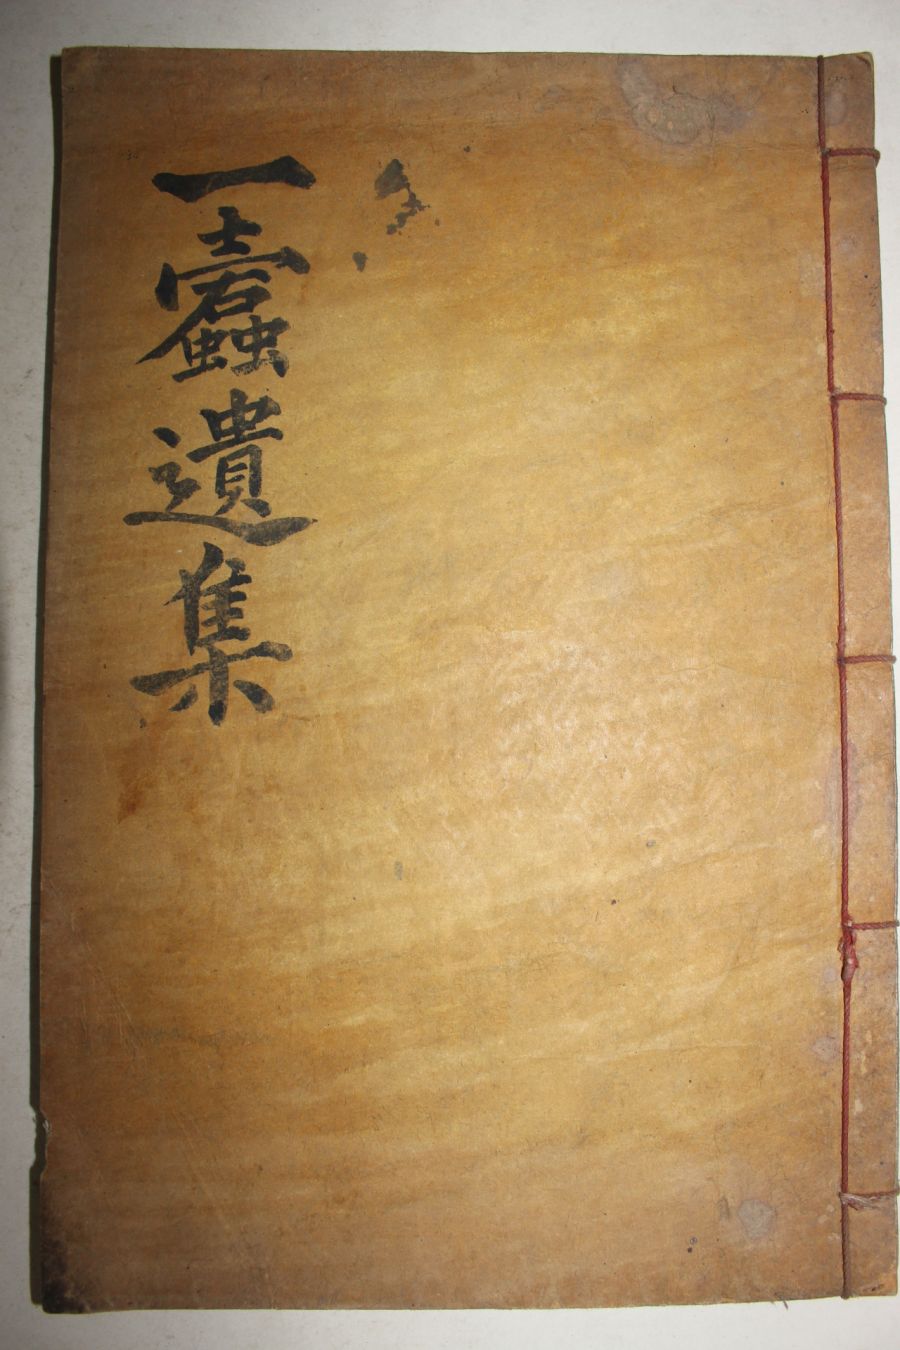 一蠹遺集